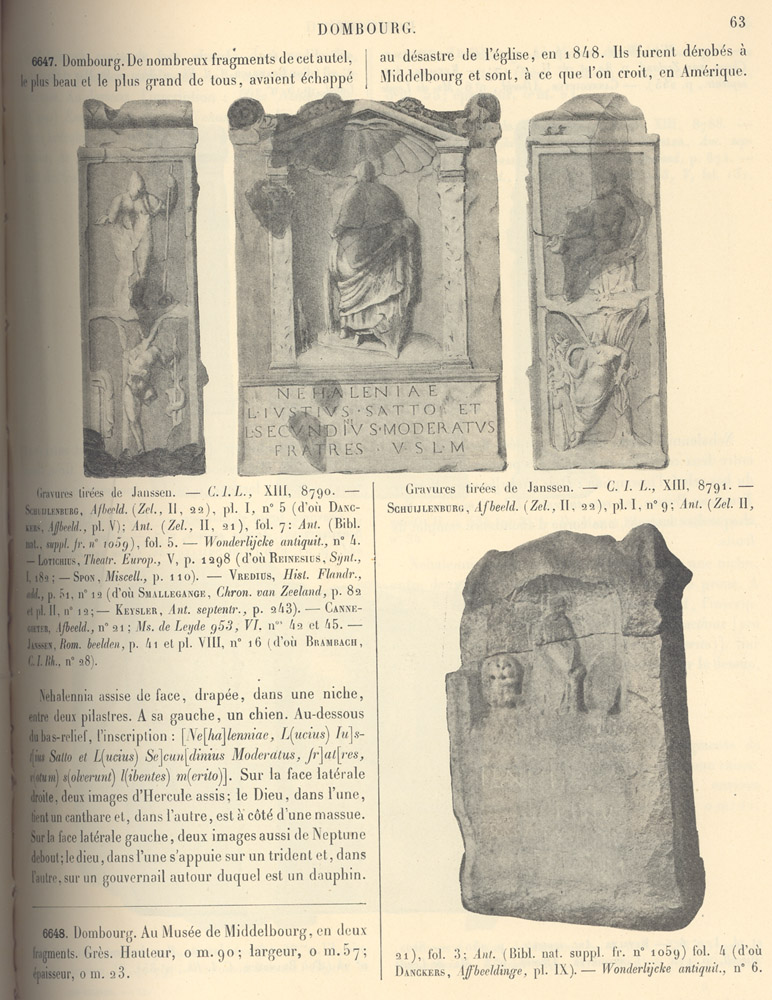 DOMBOURG.
63
6647. Dombourg. De nombreux fragments de cet autel,
le plus beau et le plus grand de tous, avaient échappé
au désastre de l'église, en 1848. Ils furent dérobés à
Middelbourg et sont, à ce que l'on croit, en Amérique.
NEHALENIAE
L·IVSTIVS·SATTO ET
L·SECVNDIVS·MODERATVS
FRATRES · V·S·L·M
Gravures tirées de Janssen. — C. I. L., XIII, 8790. —
SCHUIJLENBURG, Afbeeld. (Zel., II, 22), pl. I, n° 5 (d'où DANC-
KERS, Affbeeld., pl. V); Ant. (Zel., II, 21), fol. 7: Ant. (Bibl.
nat., suppl. fr. n° 1059), fol. 5. — Wonderlijcke antiquit., n° 4.
— LOTICHIUS, Theatr. Europ., V, p. 1298 (d'où REINESIUS, Synt.,
I, 182; — SPON, Miscell., p. 110). — VREDIUS, Hist. Flandr.,
add., p. 51, n° 12 (d'où SMALLEGANGE, Chron. van Zeeland, p. 82
et pl. II, n° 12; — KEYSLER, Ant. septentr., p. 243). — CANNE-
GIETER, Afbeeld., n° 21; Ms. de Leyde 953, VI, n°˙ 42 et 45. —
JANSSEN, Rom. beelden, p. 41 et pl. VIII, n° 16 (d'où BRAMBACH,
C. I. Rh., n° 28).
Nehalennia assise de face, drapée, dans une niche,
entre deux pilastres. A sa gauche, un chien. Au-dessous
du bas-relief, l'inscription : [Ne[ha]lenniae, L(ucius) Iu]s-
t[ius Satto et L(ucius) Se]cun[dinius Moderatus, fr]at[res,
v(otum) s(olverunt) l(ibentes) m(erito)]. Sur la face latérale
droite, deux images d'Hercule assis; le Dieu, dans l'une,
tient un canthare et, dans l'autre, est à côté d'une massue.
Sur la face latérale gauche, deux images aussi de Neptune
debout; le dieu, dans l'une s'appuie sur un trident et, dans
l'autre, sur un gouvernail autour duquel est un dauphin.
6648. Dombourg. Au Musée de Middelbourg, en deux
fragments. Grès. Hauteur, 0 m. 90; largeur, 0 m. 57;
épaisseur, 0 m. 23.
Gravures tirées de Janssen. — C. I. L., XIII, 8791. —
SCHUIJLENBURG, Afbeeld. (Zel., II, 22), pl. I, n° 9; Ant. (Zel. II,
21), fol. 3; Ant. (Bibl. nat. suppl. fr. n° 1059) fol. 4 (d'où
DANCKERS, Affbeeldinge, pl. IX). — Wonderlijcke antiquit., n° 6.